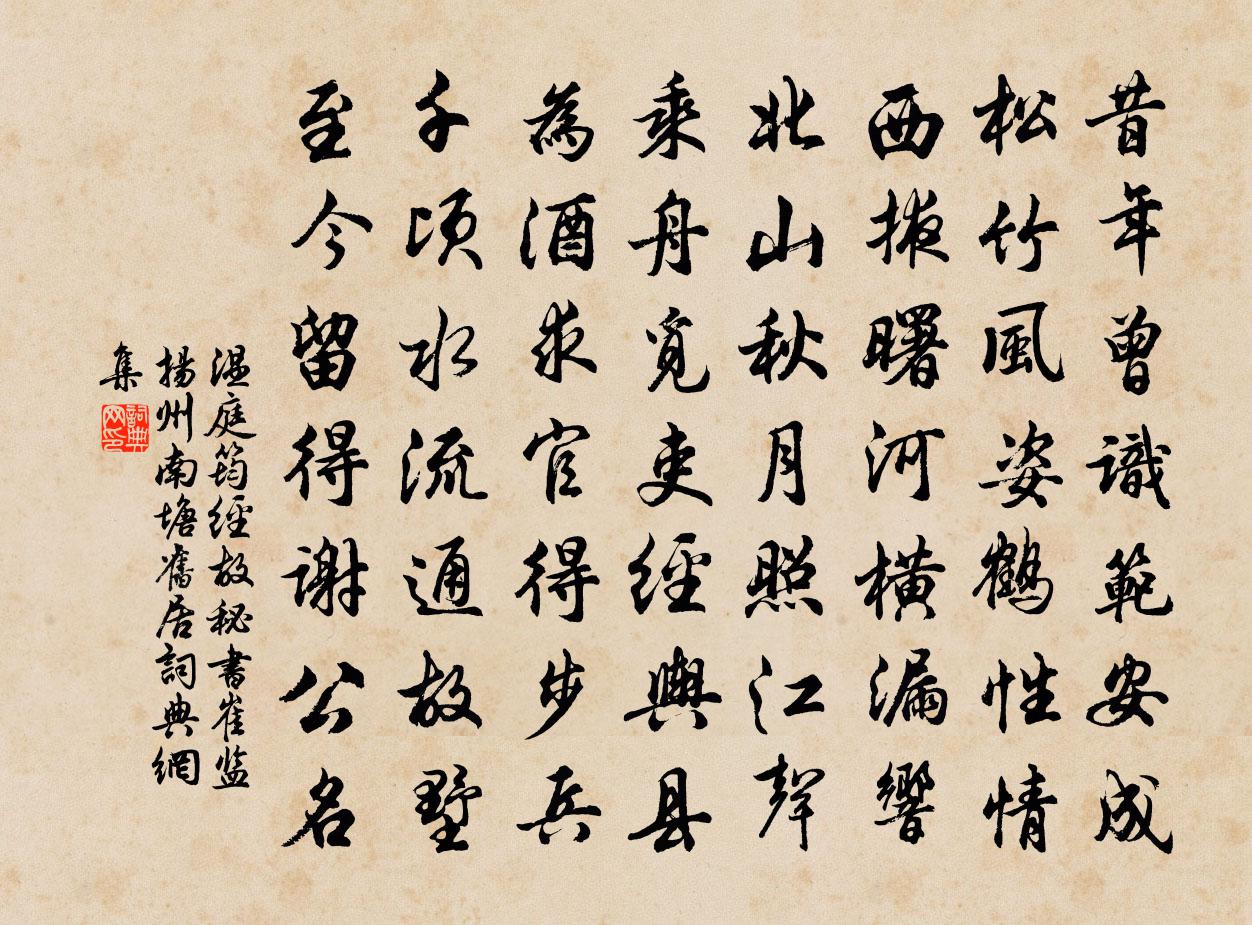 昔年曾識範安成
松竹風姿鶴性情
西掖曙河橫漏響
北山秋月照江聲
乘舟覓吏經輿县
為酒求官得步兵
千頃水流通故墅
至今留得謝公名
温庭筠經故秘書崔监
揚州南塘舊居詞典網
集
詞典网印